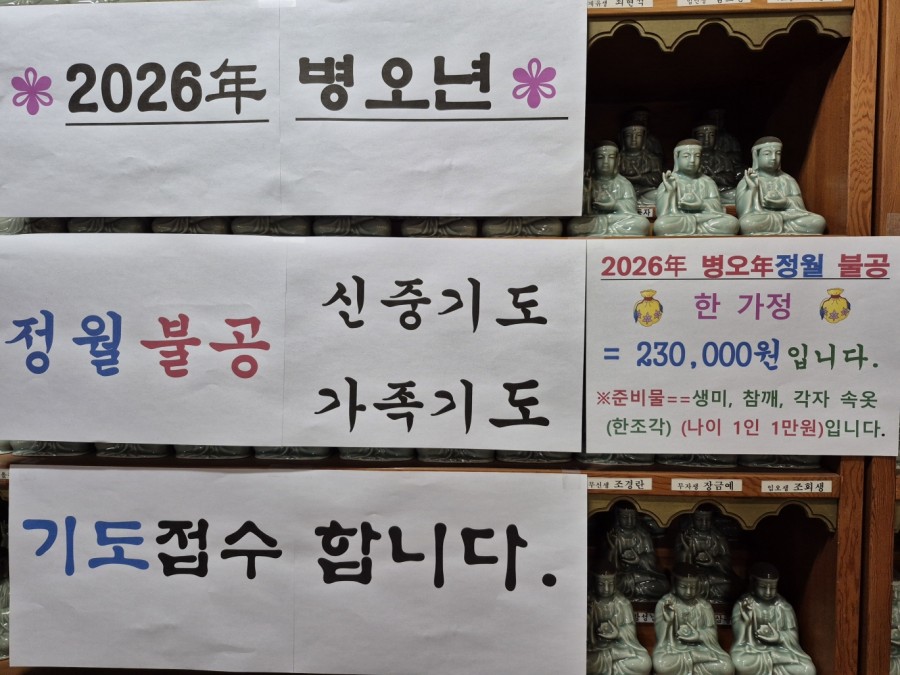 2026年 병오년
정월 불공
신중기도
가족기도
2026年 병오年정월 불공
한 가정
= 230,000원입니다.
※준비물==생미, 참깨, 각자 속옷
(한조각) (나이 1인 1만원)입니다.
무신생 조경란
무자생 장금예
임오생 조희생
기도접수 합니다.